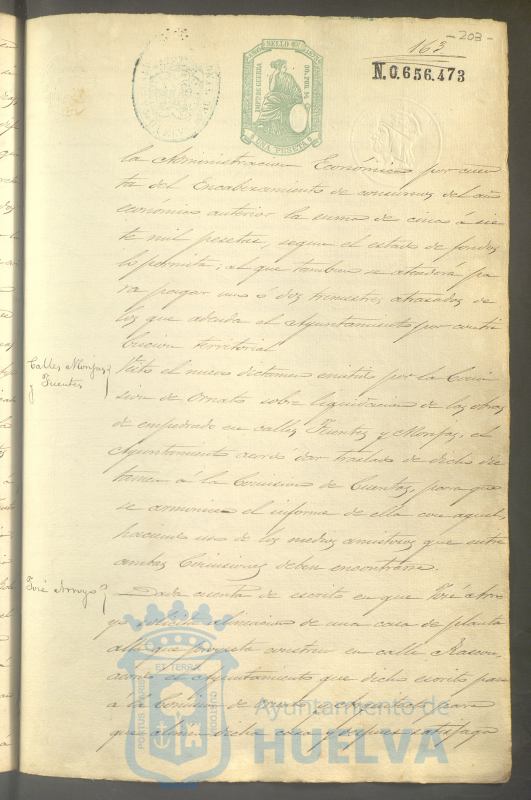 - 203 -
163
SELLO
IMPTO DE GUERRA
UNA PESETA
N.0.656.473
la Administracion Económica por cuen
ta del Encabezamiento de consumos del año
económico anterior la suma de cinco á sie
te mil pesetas, segun el estado de fondos
lo permita; al que tambien se atenderá pa
ra pagar uno ó dos trimestres atrasados de
los que adeuda el Ayuntamiento por contri
bucion territorial
Calles Monjas
y Fuentes
Visto el nuevo dictamen emitido por la Comi
sion de Ornato sobre liquidacion de las obras
de empedrado en calles Fuentes y Monjas, el
Ayuntamiento acordó dar traslado de dicho dic
tamen á la Comision de Cuentas, para que
se armonice el informe de ella con aquel,
haciendo uso de los medios amistosos que entre
ambas Comisiones deben encontrarse.
José Arroyo
Dada cuenta de escrito en que José Arro
yo solicita alineacion de una casa de planta
alta que proyecta construir en calle Rascon,
acordó el Ayuntamiento que dicho escrito pase
a la Comision de para
que alinee dicha casa y despues satisfaga
PORTUS
ET TERRÆ
CUSTODIA
Ayuntamiento de
HUELVA